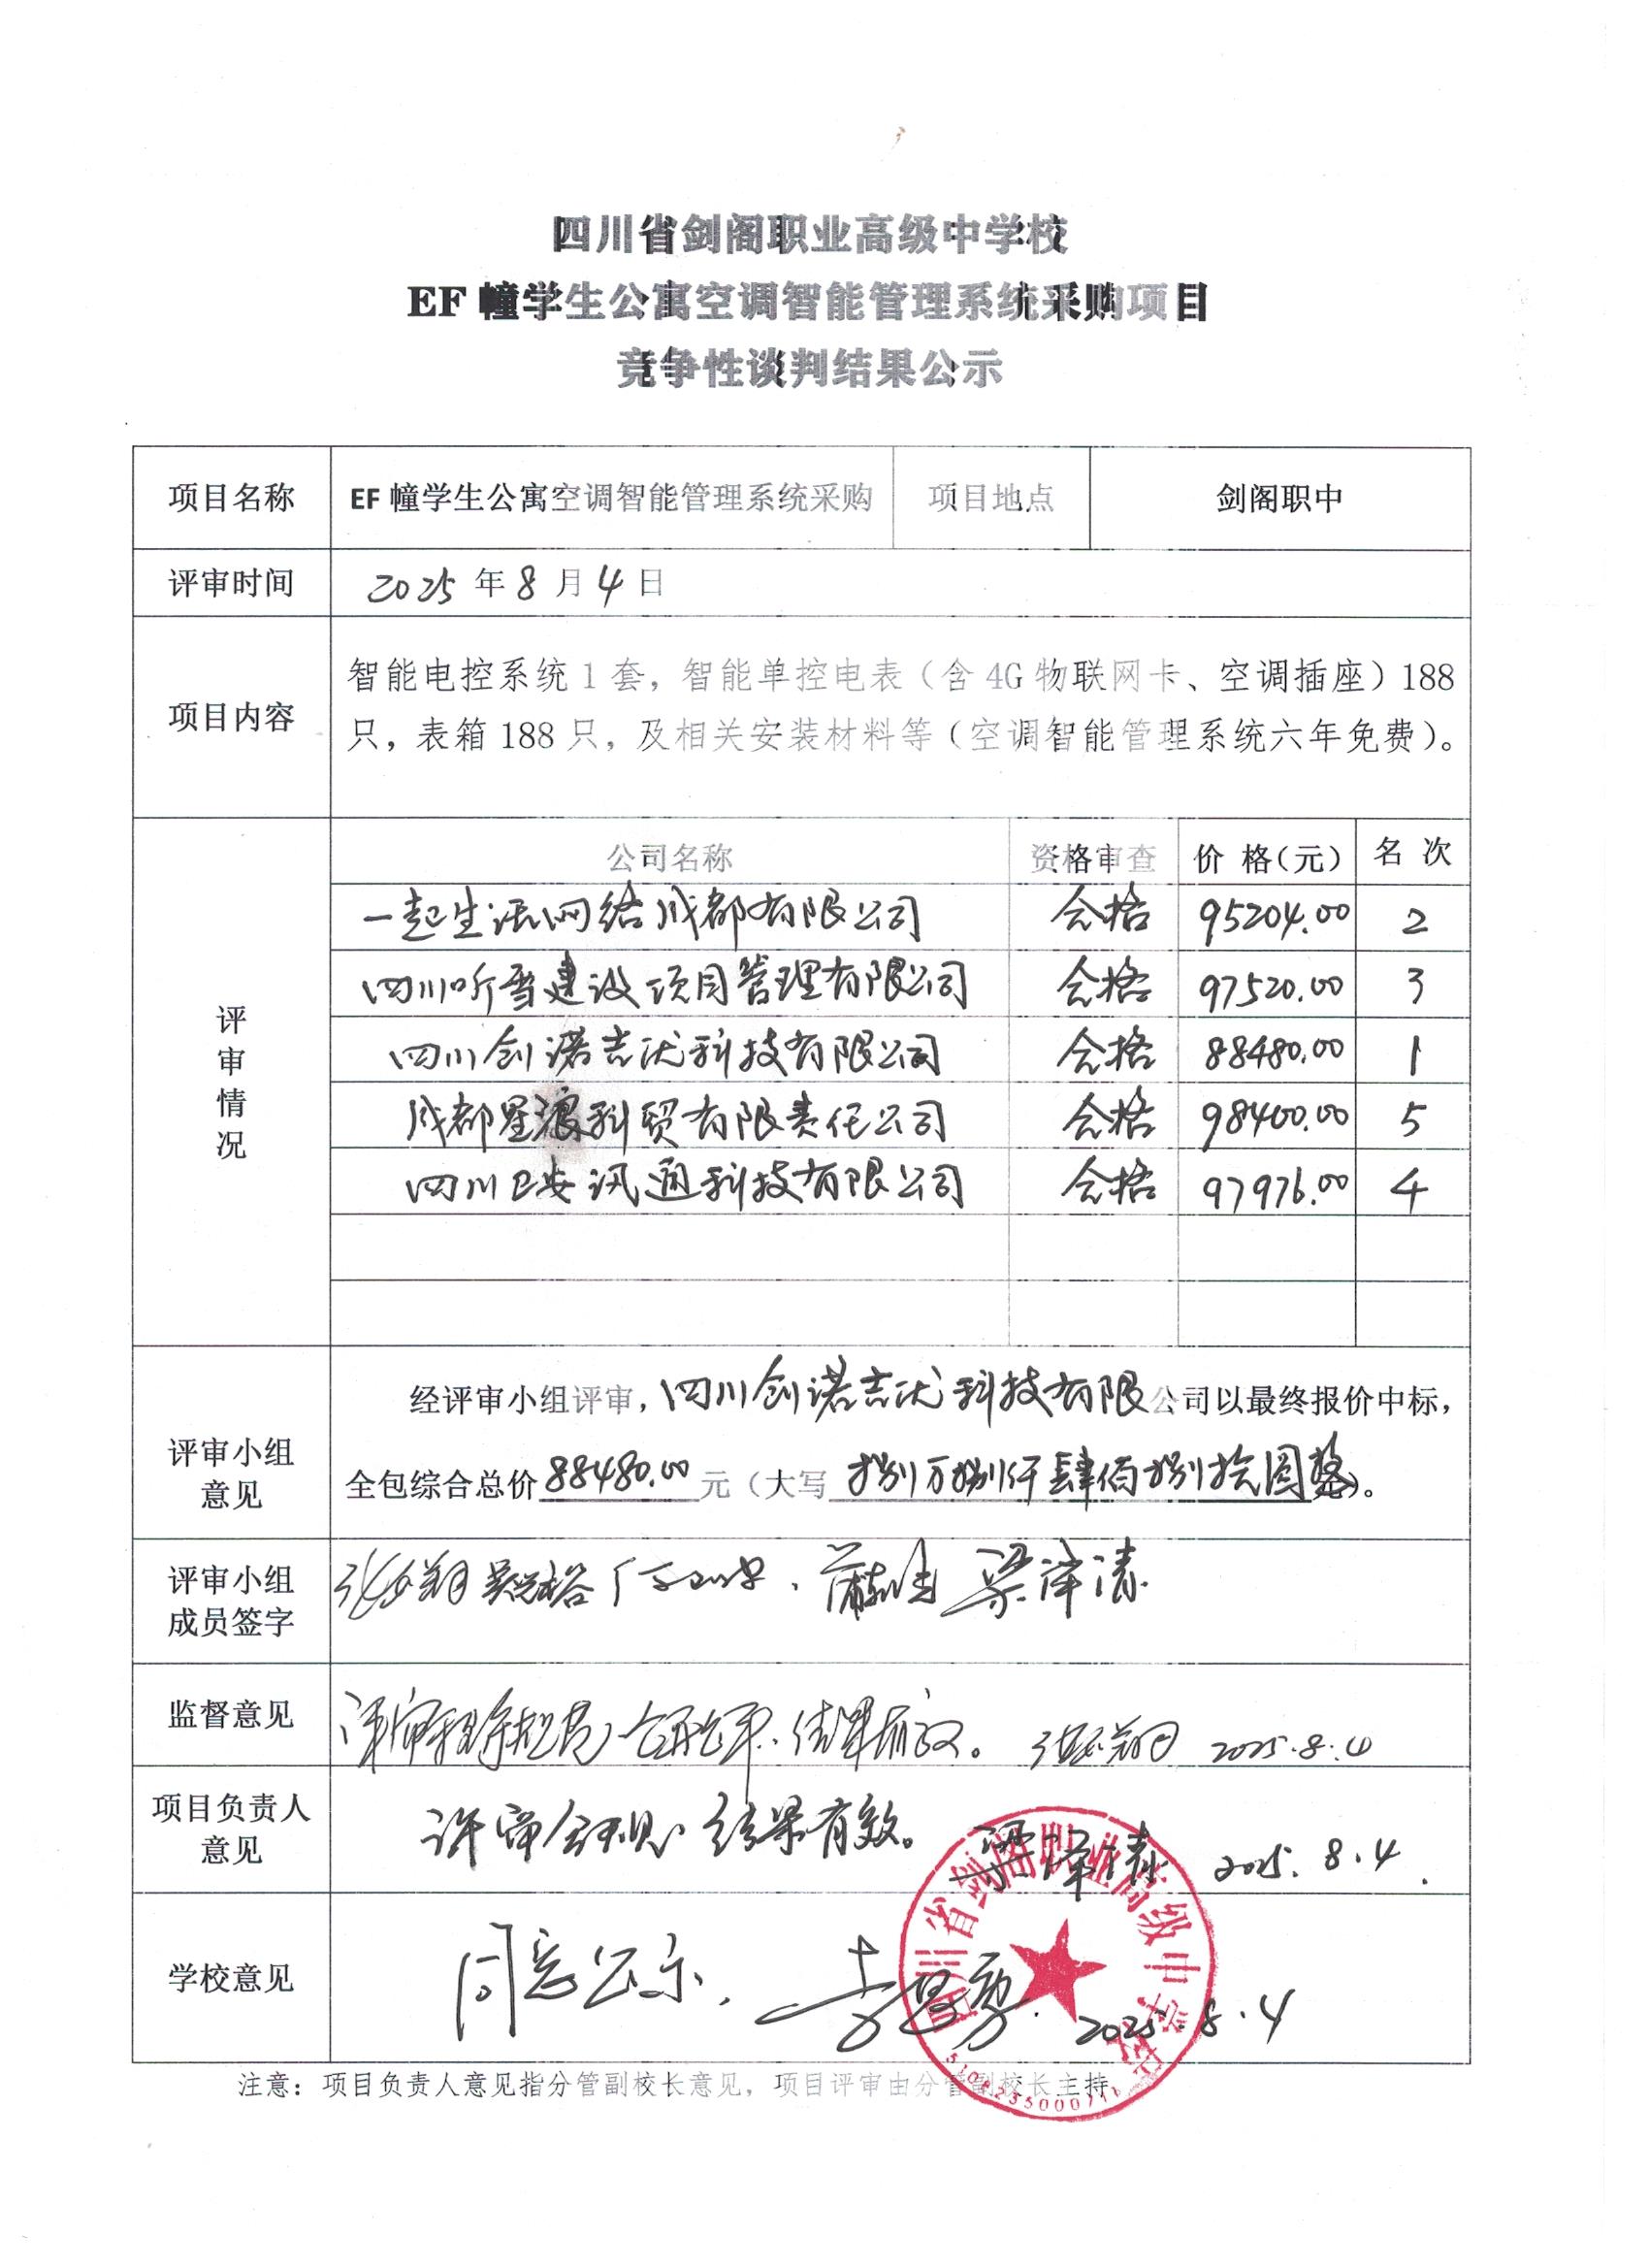 四川省剑阁职业高级中学校
EF幢学生公寓空调智能管理系统采购项目
竞争性谈判结果公示
项目名称 EF幢学生公寓空调智能管理系统采购 项目地点 剑阁职中
评审时间 2025年8月4日
项目内容
智能电控系统1套，智能单控电表（含4G物联网卡、空调插座）188
只，表箱188只，及相关安装材料等（空调智能管理系统六年免费）。
评审情况
公司名称 资格审查 价格(元) 名次
一起生活网络成都有限公司 合格 95204.00 2
四川听雪建设项目管理有限公司 合格 97520.00 3
四川创诺吉优科技有限公司 合格 88480.00 1
成都星浪科贸有限责任公司 合格 98400.00 5
四川安讯通科技有限公司 合格 97976.00 4
评审小组意见
经评审小组评审，四川创诺吉优科技有限公司以最终报价中标，
全包综合总价88480.00元（大写 捌万捌仟肆佰捌拾圆整）。
评审小组
成员签字
梁泽清
监督意见
评审程序规范，公开公平，结果有效。 2025.8.4
项目负责人
意见
评审合规，结果有效。 梁泽清 2025.8.4
学校意见
同意公示， 2025.8.4
四川省剑阁职业高级中学校
注意：项目负责人意见指分管副校长意见，项目评审由分管副校长主持